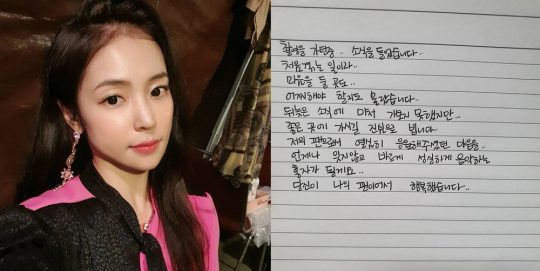 촬영을 가던중.. 소식을 들었습니다..
처음겪는 일이라..
마음을 둘 곳도..
어찌해야 할지도 몰랐습니다..
뒤늦은 소식에 마저 가보지 못했지만..
좋은 곳에 가시길 진심으로 빕니다..
저의 팬으로써 열심히 응원해주셨던 마음을..
언제나 잊지않고 바르게 성실하게 음악하는
홍자가 될게요..
당신이 나의 팬이여서 행복했습니다..